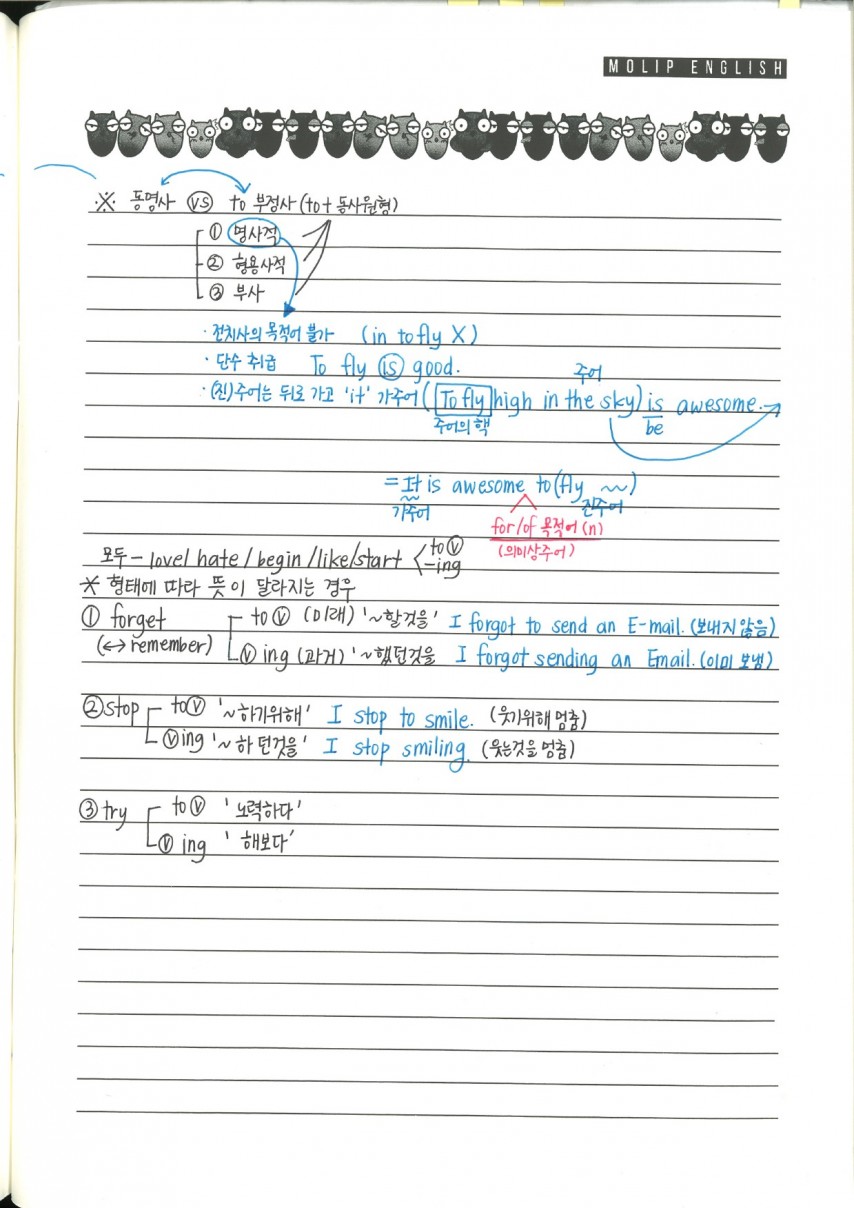 MOLIP ENGLISH
※ 동명사 VS to 부정사 (to+ 동사원형)
① 명사적
② 형용사적
③ 부사
· 전치사의 목적어 불가 (in to fly X)
· 단수 취급 To fly is good.
주어
· (진)주어는 뒤로 가고 'it' 가주어 (To fly high in the sky) is awesome.
주어의 핵 be
= It is awesome to (fly ~~)
가주어 진주어
for/of 목적어 (n)
(의미상주어)
모두 - love/ hate / begin /like/start < to ⓥ
-ing
* 형태에 따라 뜻이 달라지는 경우
① forget to ⓥ (미래) '~할것을' I forgot to send an E-mail. (보내지 않음)
(↔ remember) ⓥ ing (과거) '~했던것을 I forgot sending an Email. (이미 보냄)
② stop to ⓥ '~하기위해' I stop to smile. (웃기위해 멈춤)
ⓥ ing '~하던것을' I stop smiling. (웃는것을 멈춤)
③ try to ⓥ '노력하다'
ⓥ ing '해보다'